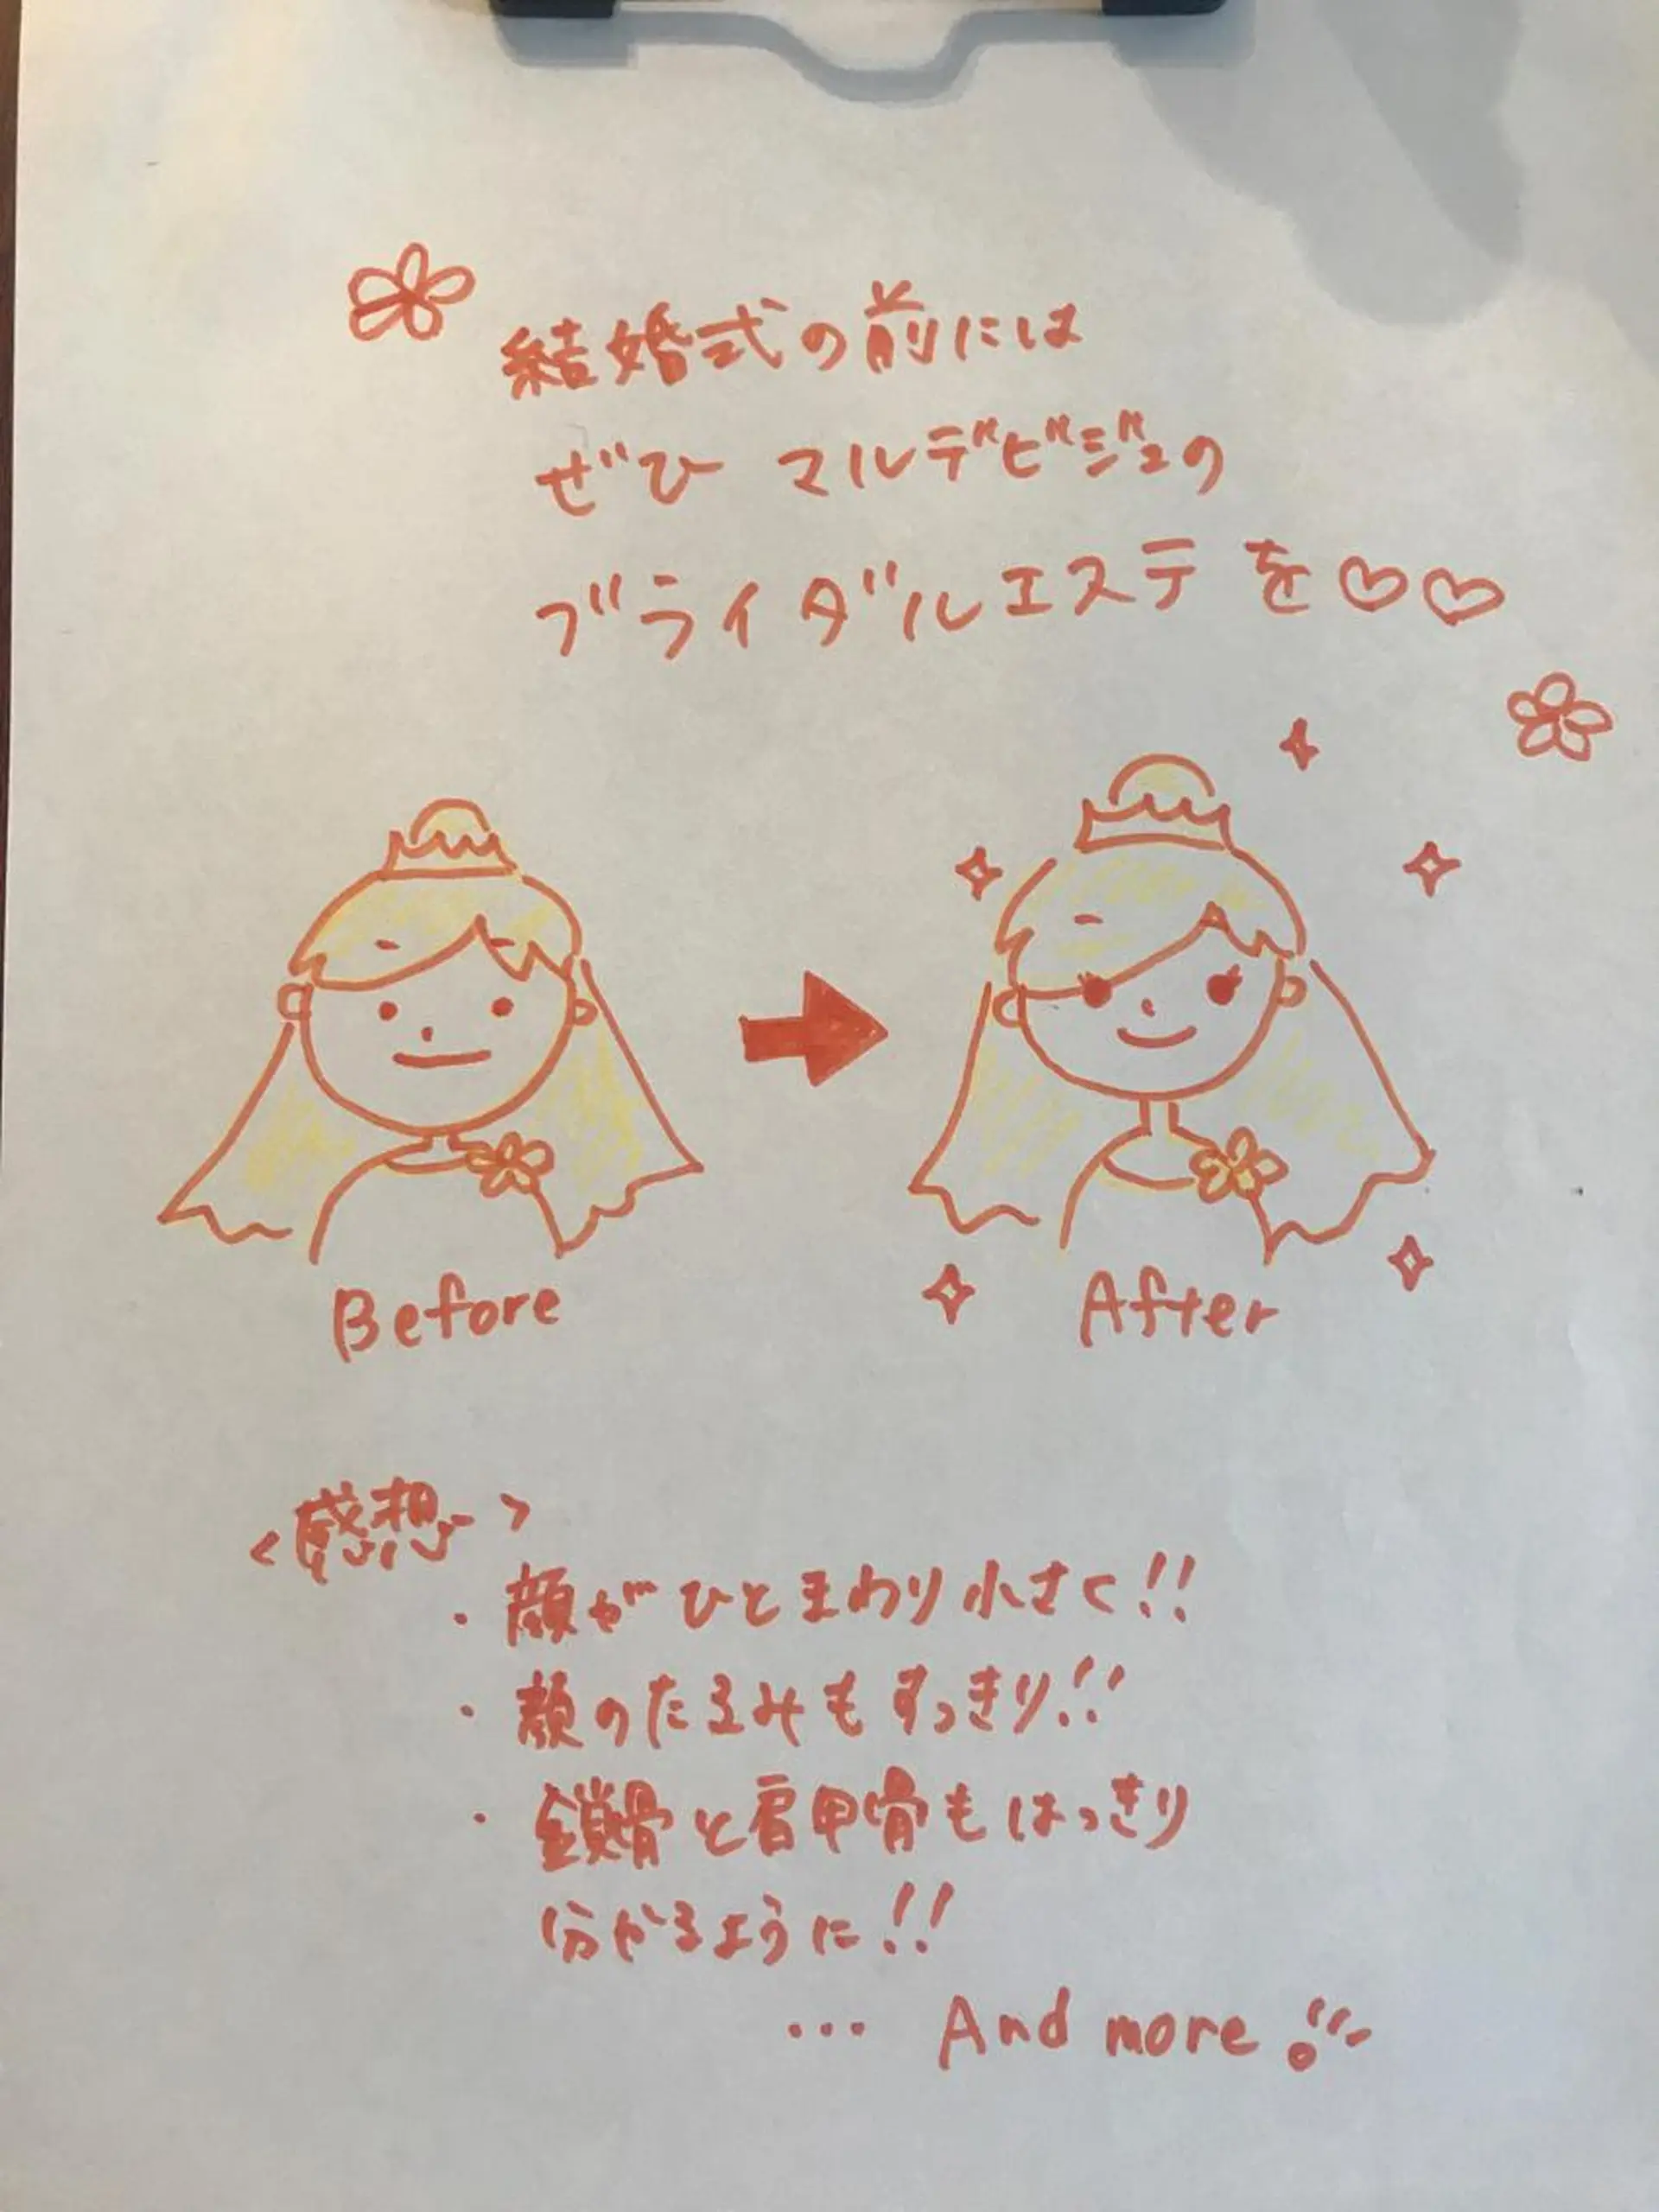 結婚式の前には
ぜひ マルデビジュの
ブライダルエステを♡♡
Before
After
<感想>
・顔がひとまわり小さく!!
・顔のたるみもすっきり!!
・鎖骨と肩甲骨もはっきり
分かるように!!
... And more